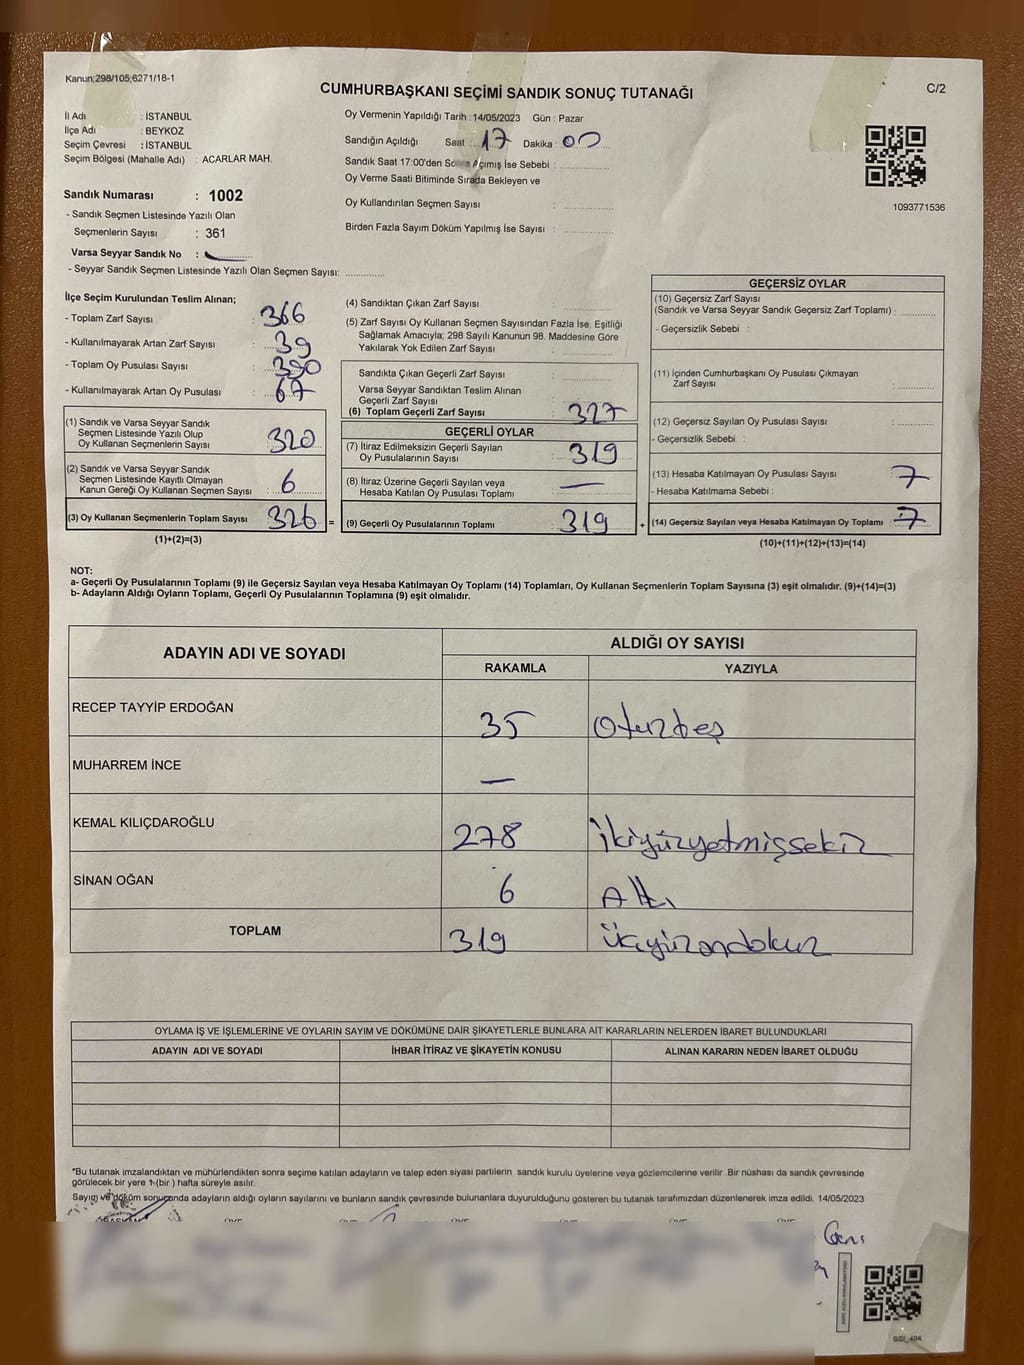 Kanun;298/105;6271/18-1
CUMHURBAŞKANI SEÇİMİ SANDIK SONUÇ TUTANAĞI
C/2
İl Adı : İSTANBUL
İlçe Adı : BEYKOZ
Seçim Çevresi : İSTANBUL
Seçim Bölgesi (Mahalle Adı) : ACARLAR MAH.
Sandık Numarası : 1002
- Sandık Seçmen Listesinde Yazılı Olan
Seçmenlerin Sayısı : 361
Varsa Seyyar Sandık No :
- Seyyar Sandık Seçmen Listesinde Yazılı Olan Seçmen Sayısı:
Oy Vermenin Yapıldığı Tarih : 14/05/2023 Gün : Pazar
Sandığın Açıldığı Saat : 17 Dakika : 00
Sandık Saat 17:00'den Sonra Açımış İse Sebebi :
Oy Verme Saati Bitiminde Sırada Bekleyen ve
Oy Kullandırılan Seçmen Sayısı :
Birden Fazla Sayım Döküm Yapılmış İse Sayısı :
1093771536
İlçe Seçim Kurulundan Teslim Alınan;
- Toplam Zarf Sayısı : 366
- Kullanılmayarak Artan Zarf Sayısı : 39
- Toplam Oy Pusulası Sayısı : 390
- Kullanılmayarak Artan Oy Pusulası : 67
(1) Sandık ve Varsa Seyyar Sandık
Seçmen Listesinde Yazılı Olup
Oy Kullanan Seçmenlerin Sayısı : 320
(2) Sandık ve Varsa Seyyar Sandık
Seçmen Listesinde Kayıtlı Olmayan
Kanun Gereği Oy Kullanan Seçmen Sayısı : 6
(3) Oy Kullanan Seçmenlerin Toplam Sayısı : 326 =
(1)+(2)=(3)
(4) Sandıktan Çıkan Zarf Sayısı :
(5) Zarf Sayısı Oy Kullanan Seçmen Sayısından Fazla İse, Eşitliği
Sağlamak Amacıyla, 298 Sayılı Kanunun 98. Maddesine Göre
Yakılarak Yok Edilen Zarf Sayısı :
Sandıkta Çıkan Geçerli Zarf Sayısı :
Varsa Seyyar Sandıktan Teslim Alınan
Geçerli Zarf Sayısı :
(6) Toplam Geçerli Zarf Sayısı : 327
GEÇERLİ OYLAR
(7) İtiraz Edilmeksizin Geçerli Sayılan
Oy Pusulalarının Sayısı : 319
(8) İtiraz Üzerine Geçerli Sayılan veya
Hesaba Katılan Oy Pusulası Toplamı : —
(9) Geçerli Oy Pusulalarının Toplamı : 319 +
GEÇERSİZ OYLAR
(10) Geçersiz Zarf Sayısı
(Sandık ve Varsa Seyyar Sandık Geçersiz Zarf Toplamı) :
- Geçersizlik Sebebi :
(11) İçinden Cumhurbaşkanı Oy Pusulası Çıkmayan
Zarf Sayısı :
(12) Geçersiz Sayılan Oy Pusulası Sayısı :
- Geçersizlik Sebebi :
(13) Hesaba Katılmayan Oy Pusulası Sayısı : 7
- Hesaba Katılmama Sebebi :
(14) Geçersiz Sayılan veya Hesaba Katılmayan Oy Toplamı : 7
(10)+(11)+(12)+(13)=(14)
NOT:
a- Geçerli Oy Pusulalarının Toplamı (9) ile Geçersiz Sayılan veya Hesaba Katılmayan Oy Toplamı (14) Toplamları, Oy Kullanan Seçmenlerin Toplam Sayısına (3) eşit olmalıdır. (9)+(14)=(3)
b- Adayların Aldığı Oyların Toplamı, Geçerli Oy Pusulalarının Toplamına (9) eşit olmalıdır.
ADAYIN ADI VE SOYADI ALDIĞI OY SAYISI
RAKAMLA YAZIYLA
RECEP TAYYİP ERDOĞAN 35 Otuzbeş
MUHARREM İNCE —
KEMAL KILIÇDAROĞLU 278 İkiyüzyetmişsekiz
SİNAN OĞAN 6 Altı
TOPLAM 319 Üçyüzondokuz
OYLAMA İŞ VE İŞLEMLERİNE VE OYLARIN SAYIM VE DÖKÜMÜNE DAİR ŞİKAYETLERLE BUNLARA AİT KARARLARIN NELERDEN İBARET BULUNDUKLARI
ADAYIN ADI VE SOYADI İHBAR İTİRAZ VE ŞİKAYETİN KONUSU ALINAN KARARIN NEDEN İBARET OLDUĞU
*Bu tutanak imzalandıktan ve mühürlendikten sonra seçime katılan adayların ve talep eden siyasi partilerin sandık kurulu üyelerine veya gözlemcilerine verilir .Bir nüshası da sandık çevresinde
görülecek bir yere 1 (bir ) hafta süreyle asılır.
Sayım ve döküm sonucunda adayların aldığı oyların sayılarını ve bunların sandık çevresinde bulunanlara duyurulduğunu gösteren bu tutanak tarafımızdan düzenlenerek imza edildi. 14/05/2023
BAŞKAN ÜYE ÜYE ÜYE ÜYE ÜYE